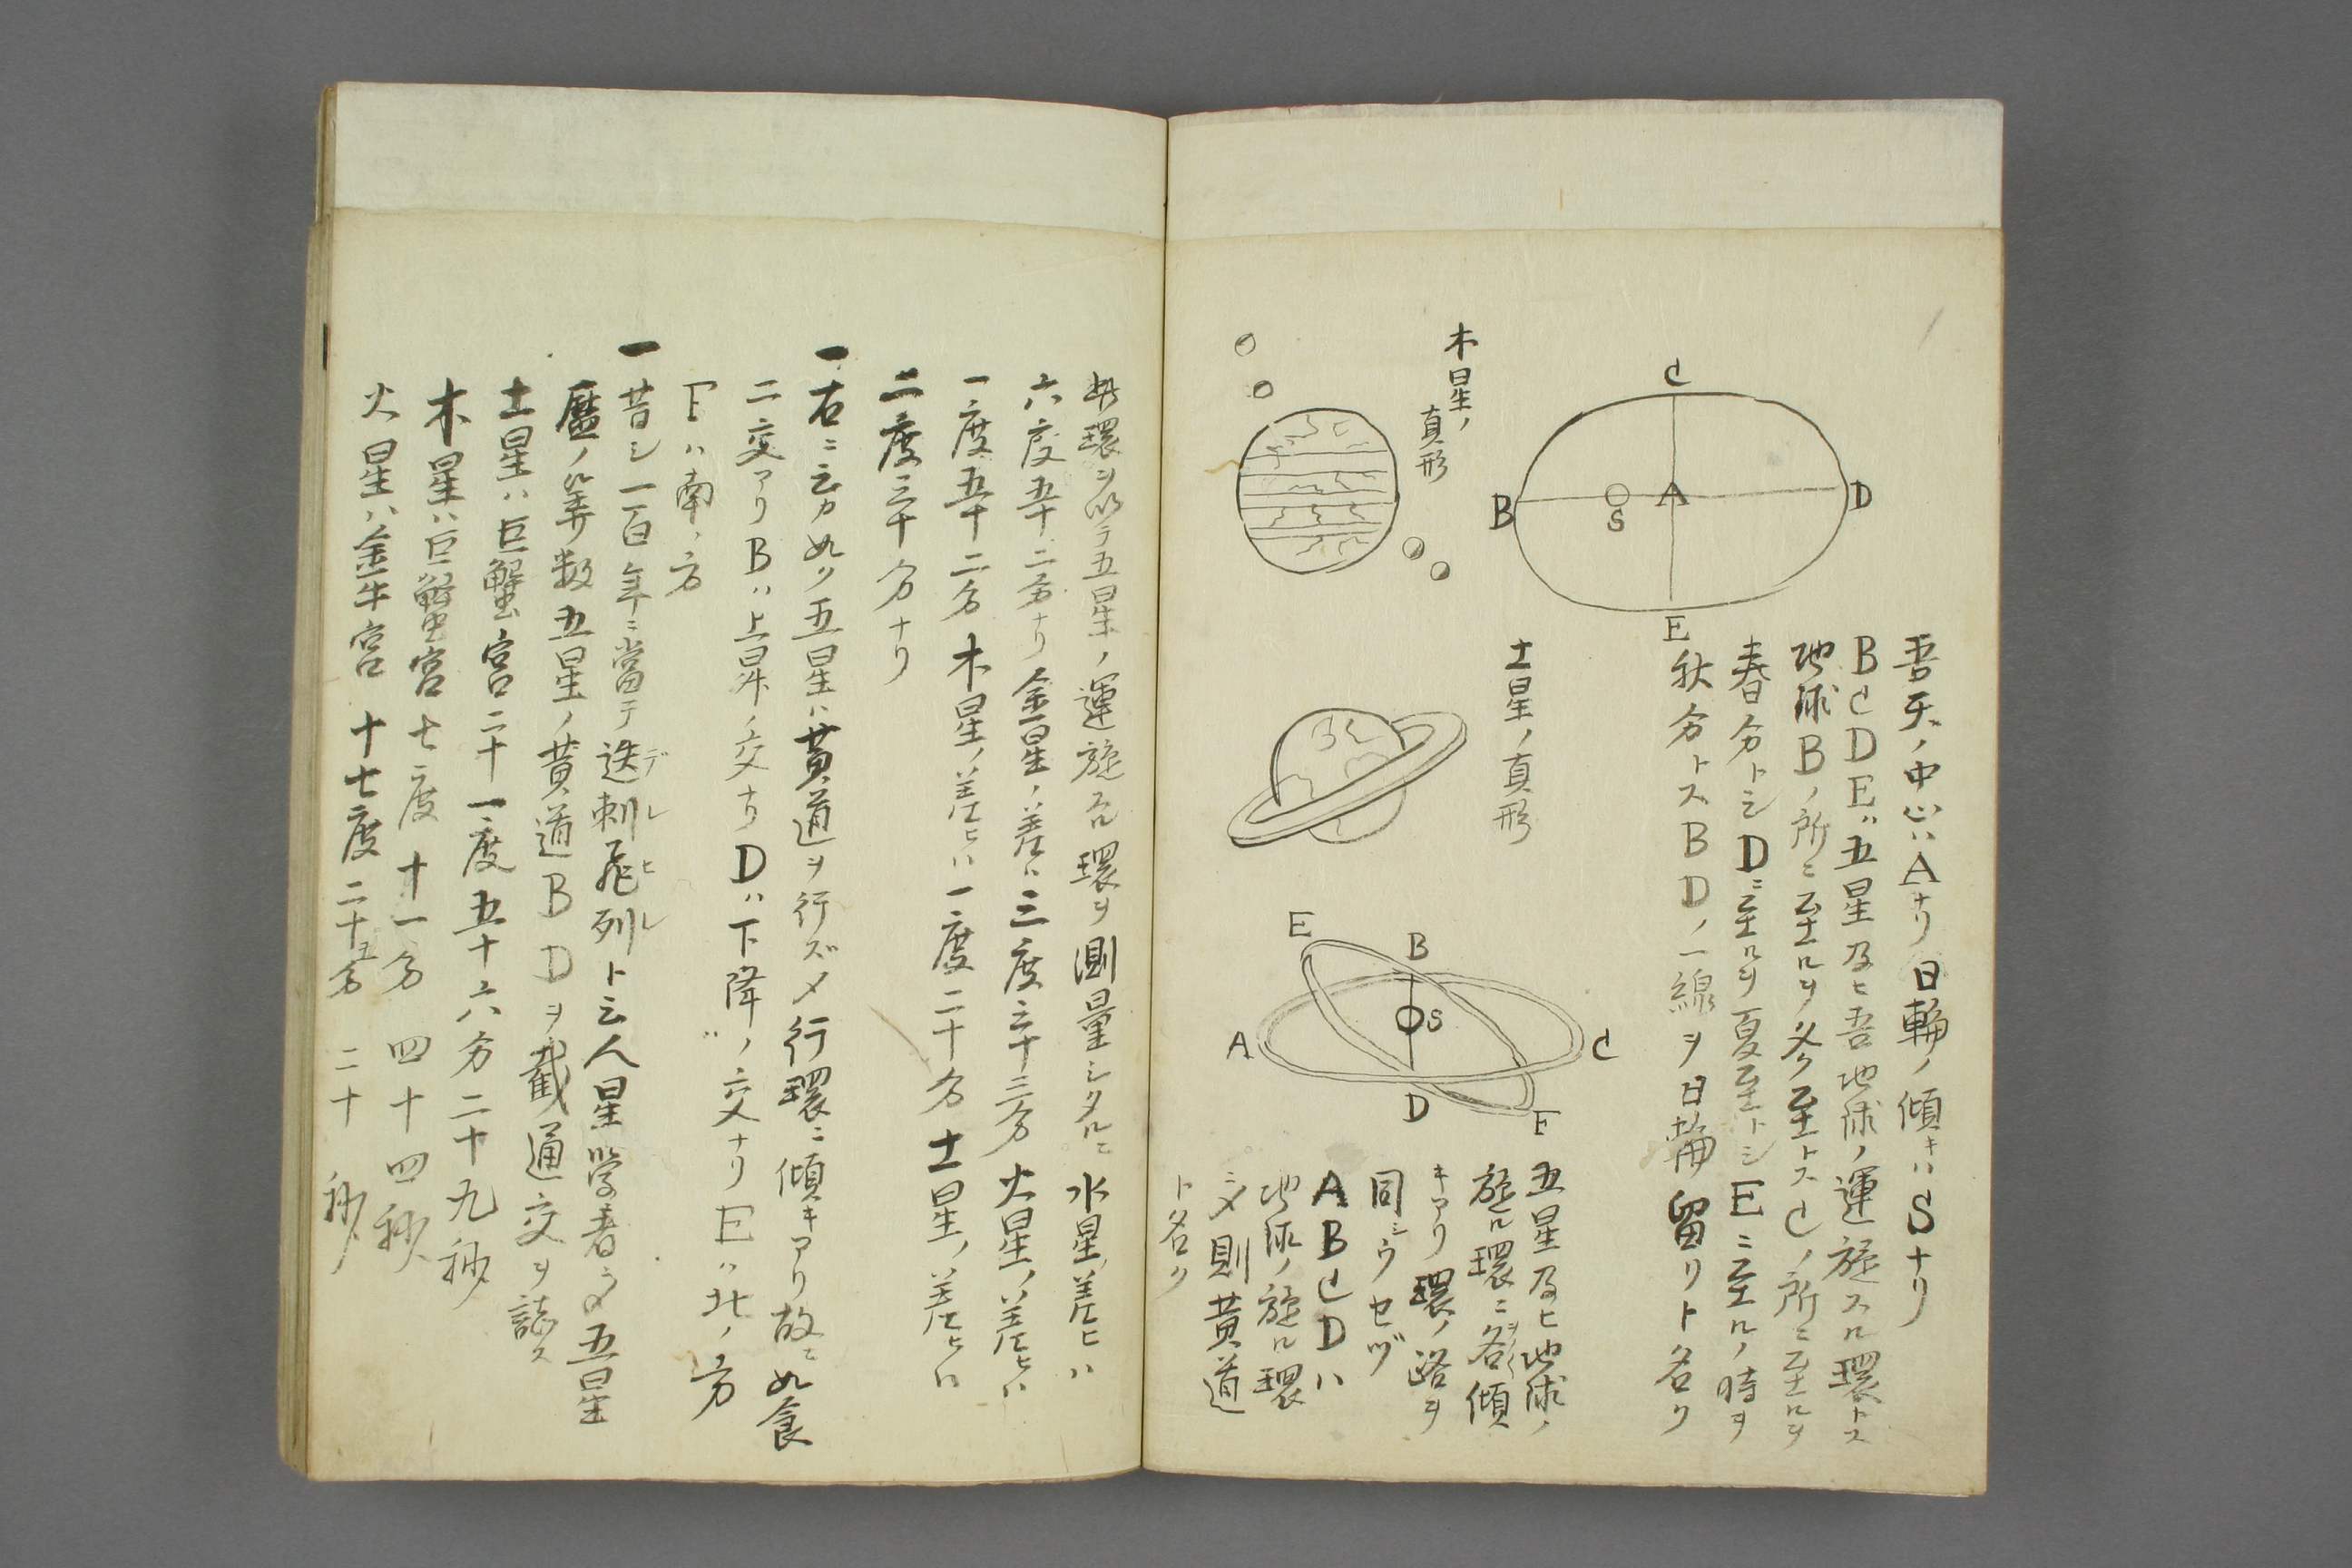 吾天ノ中心ハAナリ日輪ノ傾キハSナリ
BCDEハ五星及ヒ吾地球ノ運旋スル環トス
地球Bノ所ニ至ルヲ冬至トスCノ所ニ至ルヲ
春分トシDニ至ルヲ夏至トシEニ至ルノ時ヲ
秋分トスBDノ一線ヲ日輪留リト名ク
C
B
S
A
D
E
木星ノ
真形
土星ノ真形
E
B
S
A
C
D
F
五星及ヒ地球ノ
旋ル環ニ各傾
キアリ環ノ路ヲ
同シウセヅ
ABCDハ
地球ノ旋ル環
ニメ則黄道
ト名ク
此環ヲ以テ五星ノ運旋スル環ヲ測量シタルニ水星ノ差ヒハ
六度五十二分ナリ金星ノ差ヒハ三度二十三分火星ノ差ヒハ
一度五十二分木星ノ差ヒハ一度二十分土星ノ差ヒハ
二度三十分ナリ
一右ニ云カ如ク五星ハ黄道ヲ行ズメ行環ニ傾キアリ故ニ如食
二交アリBハ上昇ノ交ナリDハ下降ノ交ナリEハ北ノ方
Fハ南ノ方
一昔シ一百年ニ當テ迭剌飛列デレヒレト云人星学者ニメ五星
暦ノ算数五星ノ黄道BDヲ截通交ヲ誌ス
土星ハ巨蟹宮二十一度五十六分二十九秒
木星ハ巨蟹宮七度十一分四十四秒
火星ハ金牛宮十七度二十五分二十秒